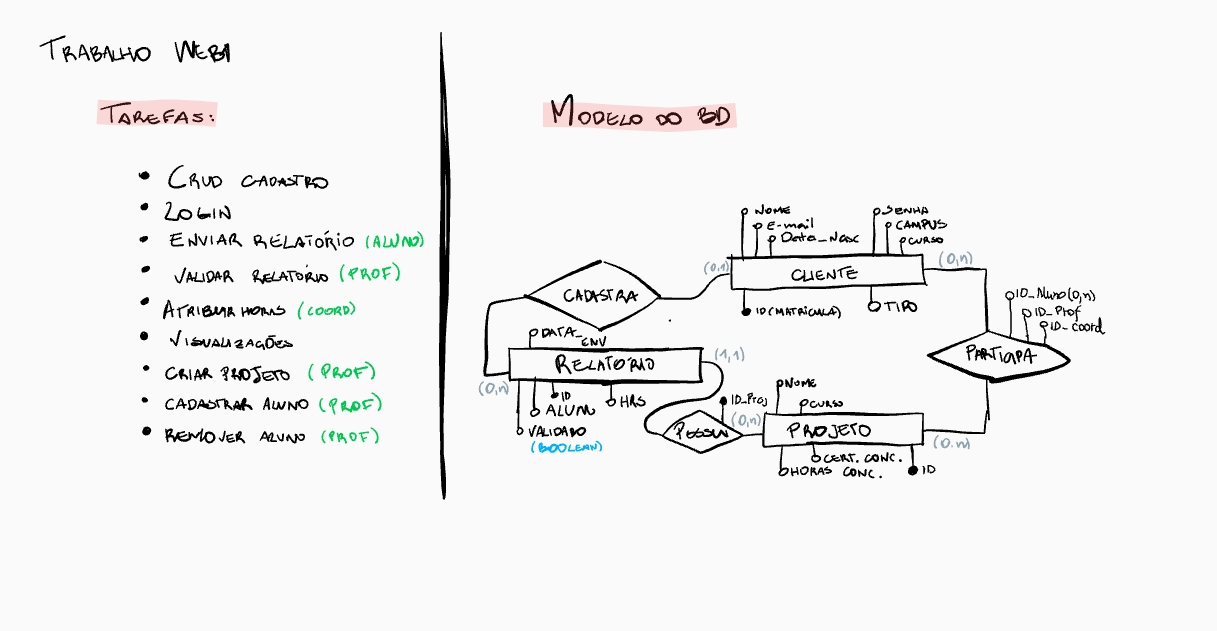 TRABALHO WEB1
TAREFAS:
• CRUD CADASTRO
• LOGIN
• ENVIAR RELATÓRIO (ALUNO)
• VALIDAR RELATÓRIO (PROF)
• ATRIBUIR HORAS (COORD)
• VISUALIZAÇÕES
• CRIAR PROJETO (PROF)
• CADASTRAR ALUNO (PROF)
• REMOVER ALUNO (PROF)
MODELO DO BD
NOME
E-mail
Data_Nasc
SENHA
CAMPUS
CURSO
(0,1)
CLIENTE
(0,n)
ID (MATRÍCULA)
TIPO
CADASTRA
ID_Aluno(0,n)
ID_Prof
ID_coord
PARTICIPA
DATA_ENV
RELATÓRIO
(1,1)
(0,n)
ID
ALUNO
HRS
VALIDADO
(BOOLEAN)
ID_Proj
POSSUI
(0,n)
NOME
CURSO
PROJETO
(0,n)
CERT. CONC.
HORAS CONC.
ID